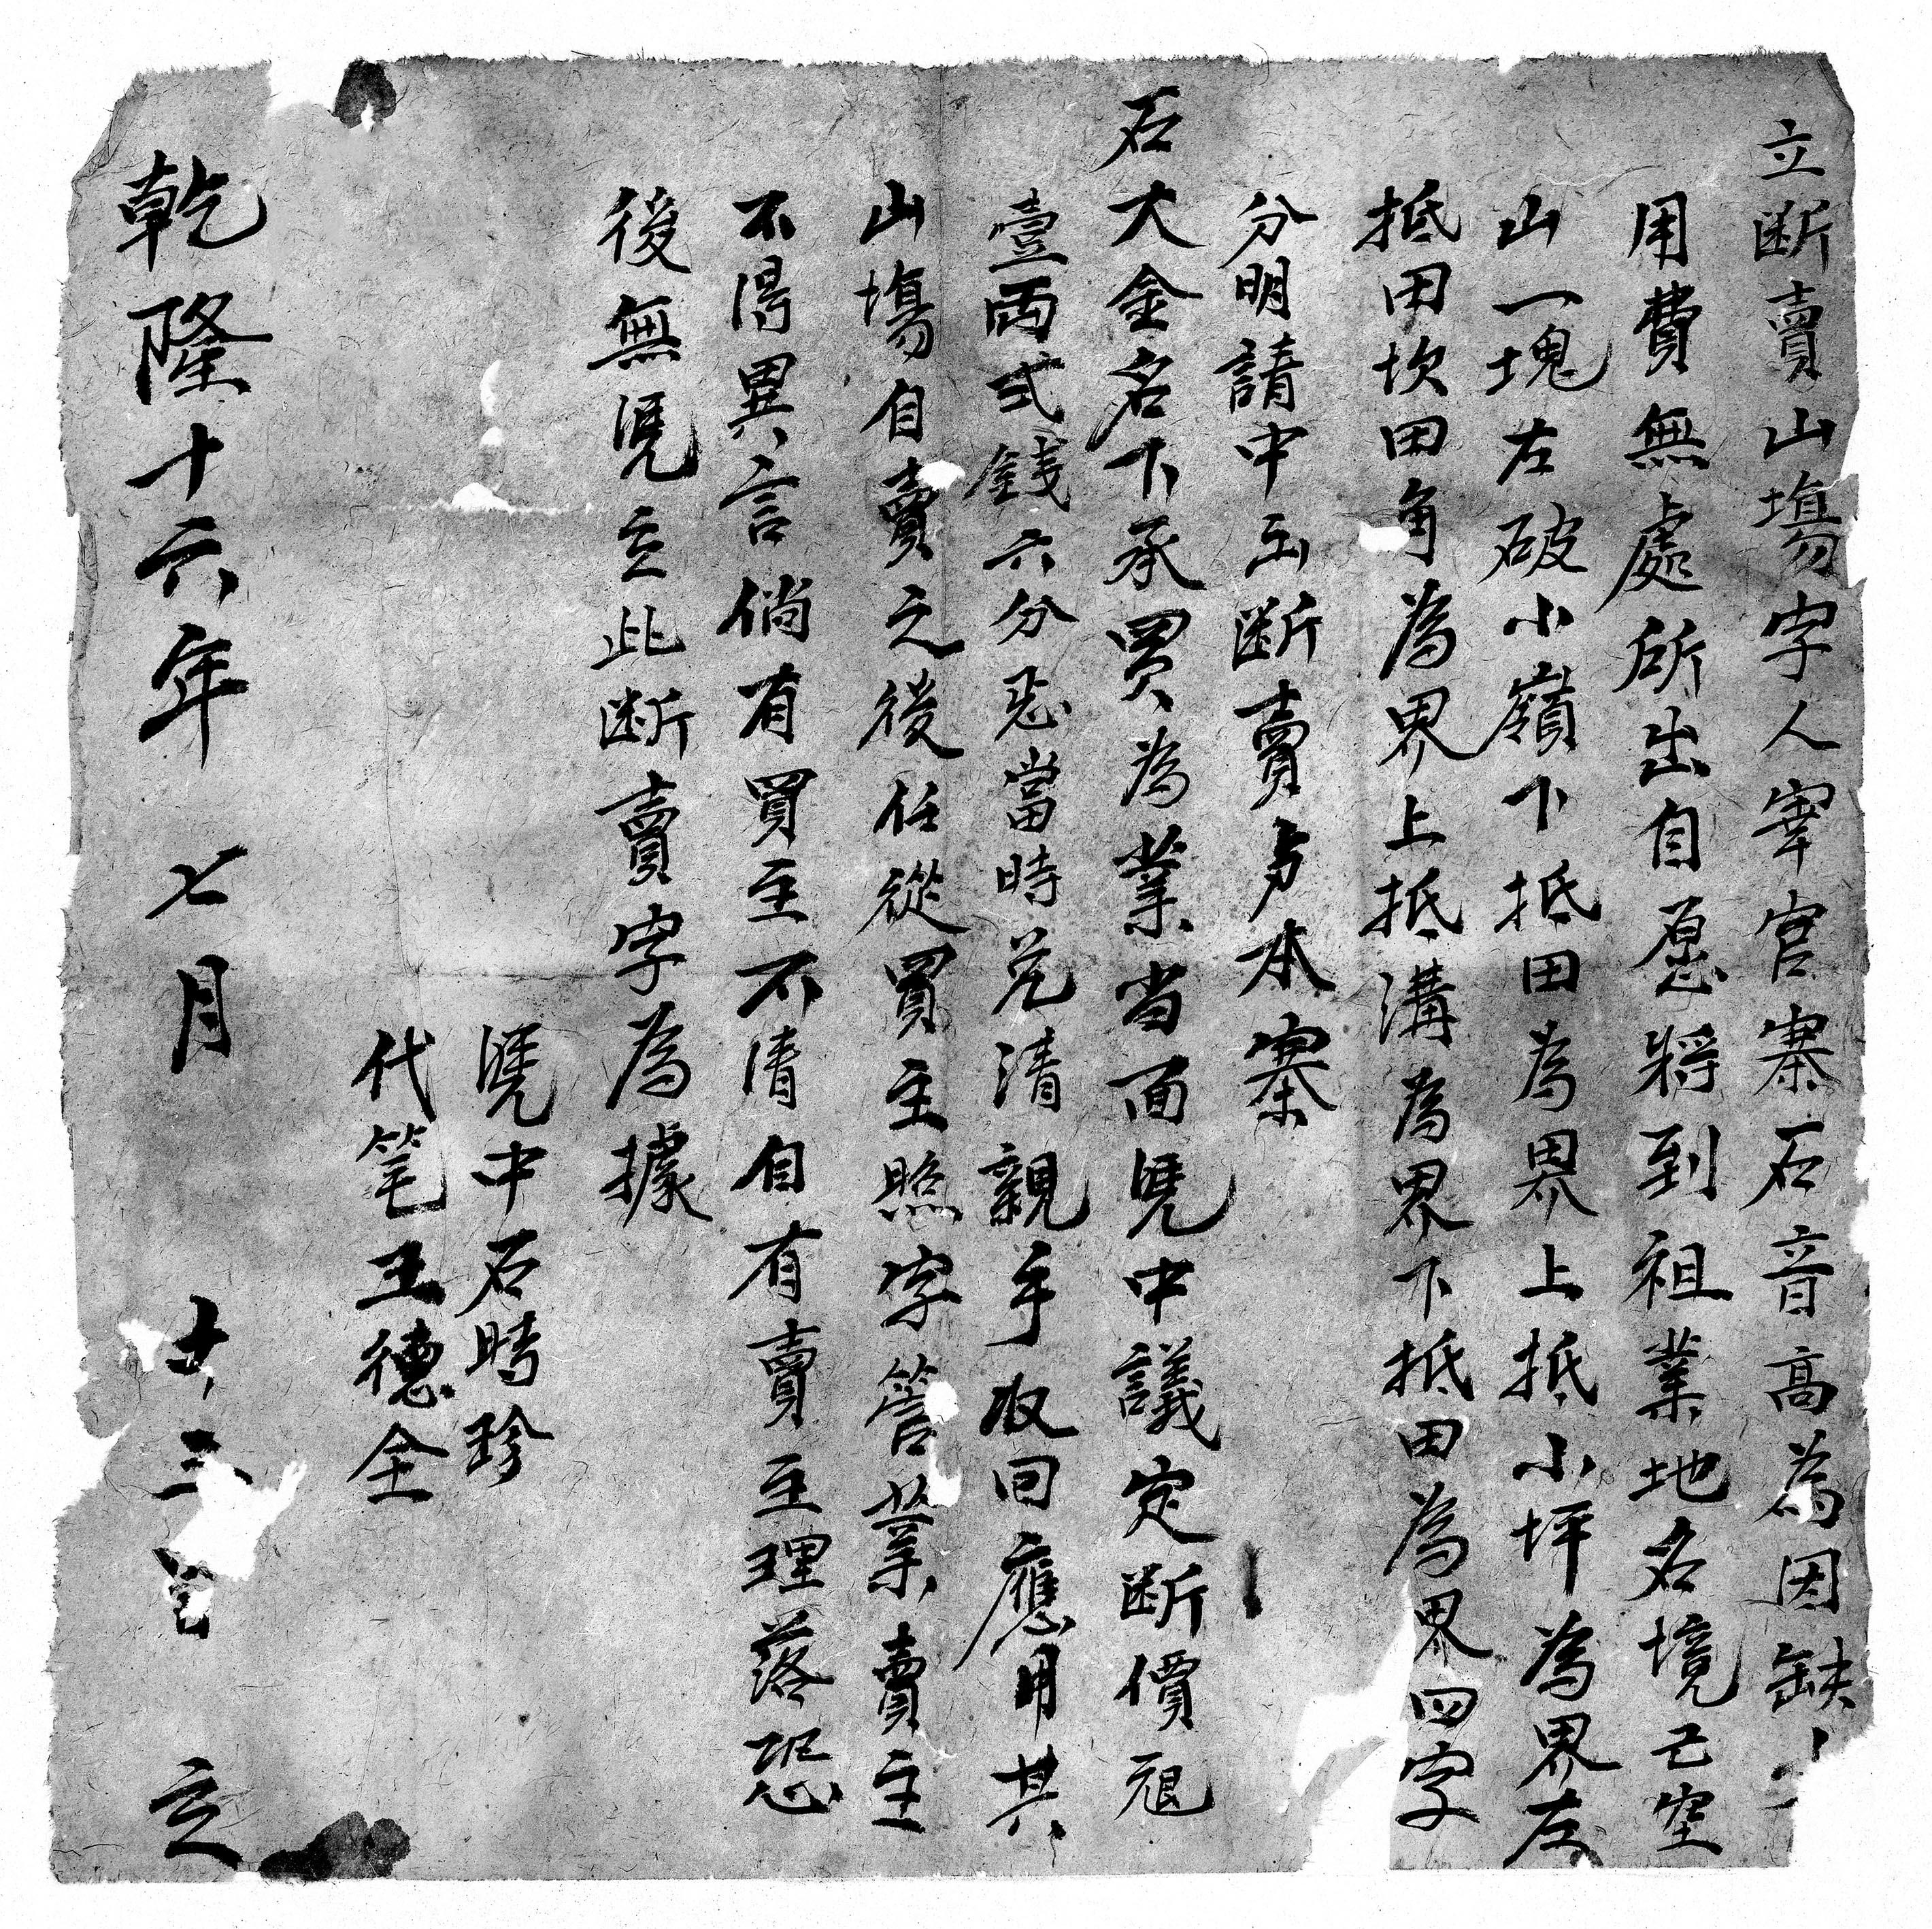 立断賣山塲字人宰官寨石音髙為因缺
用費無處所出自愿將到祖業地名境亡空
山一塊左破小嶺下抵田為界上抵小坪為界左
抵田坎田角為界上抵溝為界下抵田為界四字
分明請中出断賣与本寨
石大金名下承買為業当面凴中議定断價艮
壹両式錢六分忢當時兑清親手收回應用其
山塲自賣之後任從買主照字管業賣主
不淂異言倘有買主不清自有賣主理落恐
後無凴立此断賣字為據
凴中石時珍
代笔王德全
乾隆十六年七月十三日立